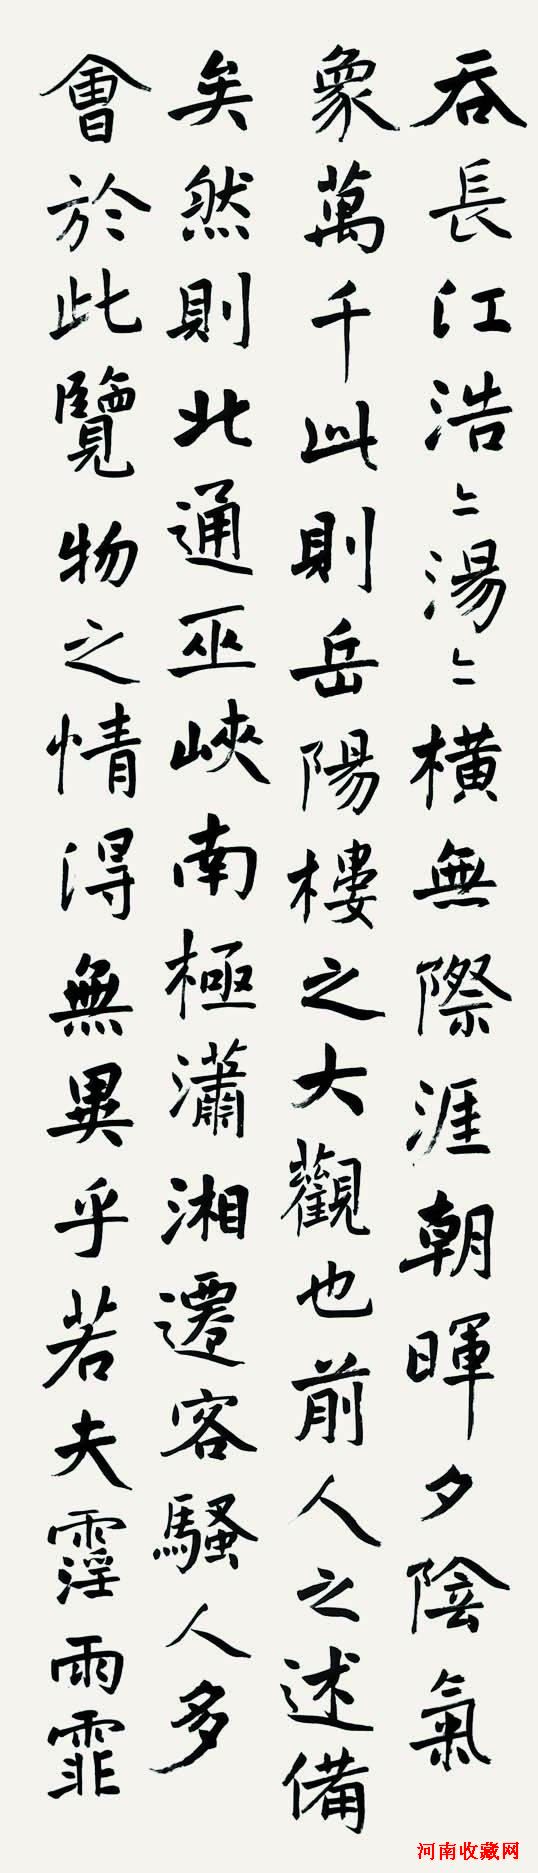 吞長江浩〻湯〻橫無際涯朝暉夕陰氣
象萬千此則岳陽樓之大觀也前人之述備
矣然則北通巫峽南極瀟湘遷客騷人多
會於此覽物之情得無異乎若夫霪雨霏
河南收藏网